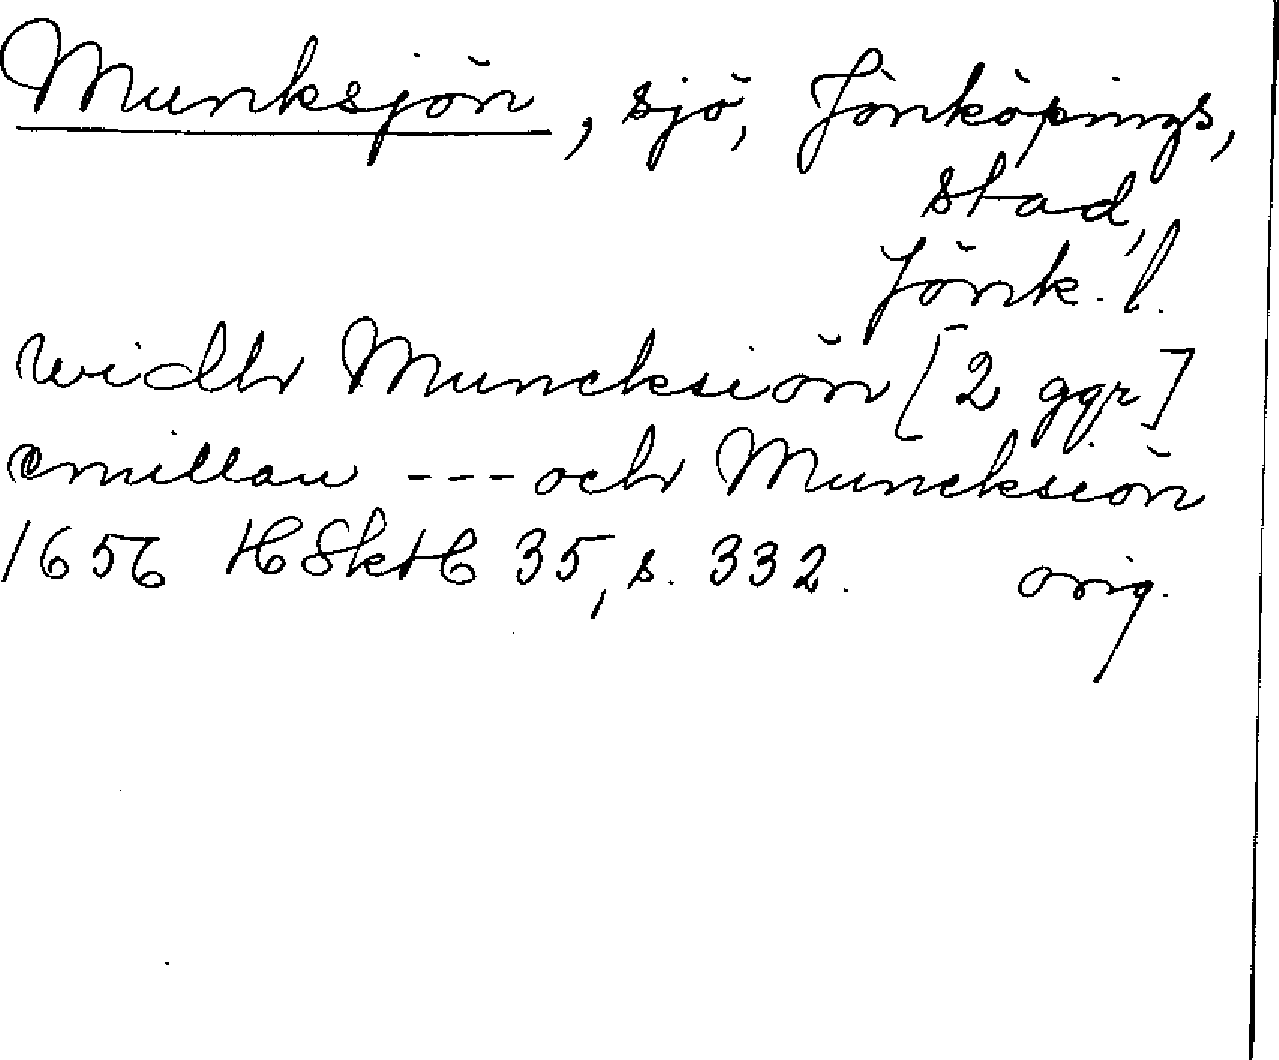 Munksjön, sjö, Jönköpings,
stad,
Jönk. l.
widh Muncksiön [2 ggr]
emillan --- och Muncksiön
1656 HSkH 35, s. 332. orig.